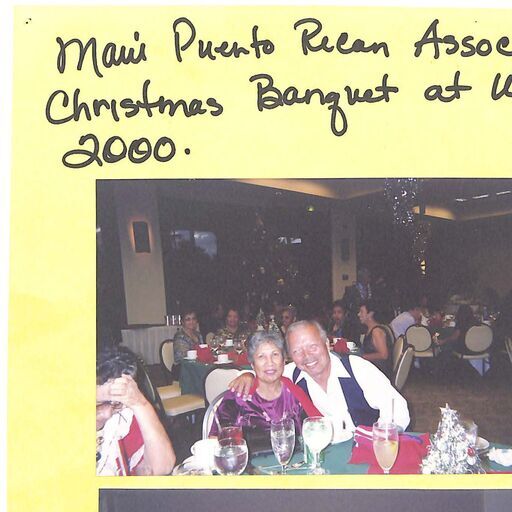 Maui Puerto Rican Assoc
Christmas Banquet at W
2000.